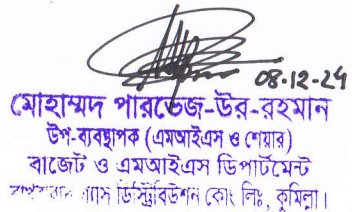 08-12-24
মোহাম্মদ পারভেজ-উর-রহমান
উপ-ব্যবস্থাপক (এমআইএস ও শেয়ার)
বাজেট ও এমআইএস ডিপার্টমেন্ট
গ্যাস ডিস্ট্রিবিউশন কোং লিঃ, কুমিল্লা।